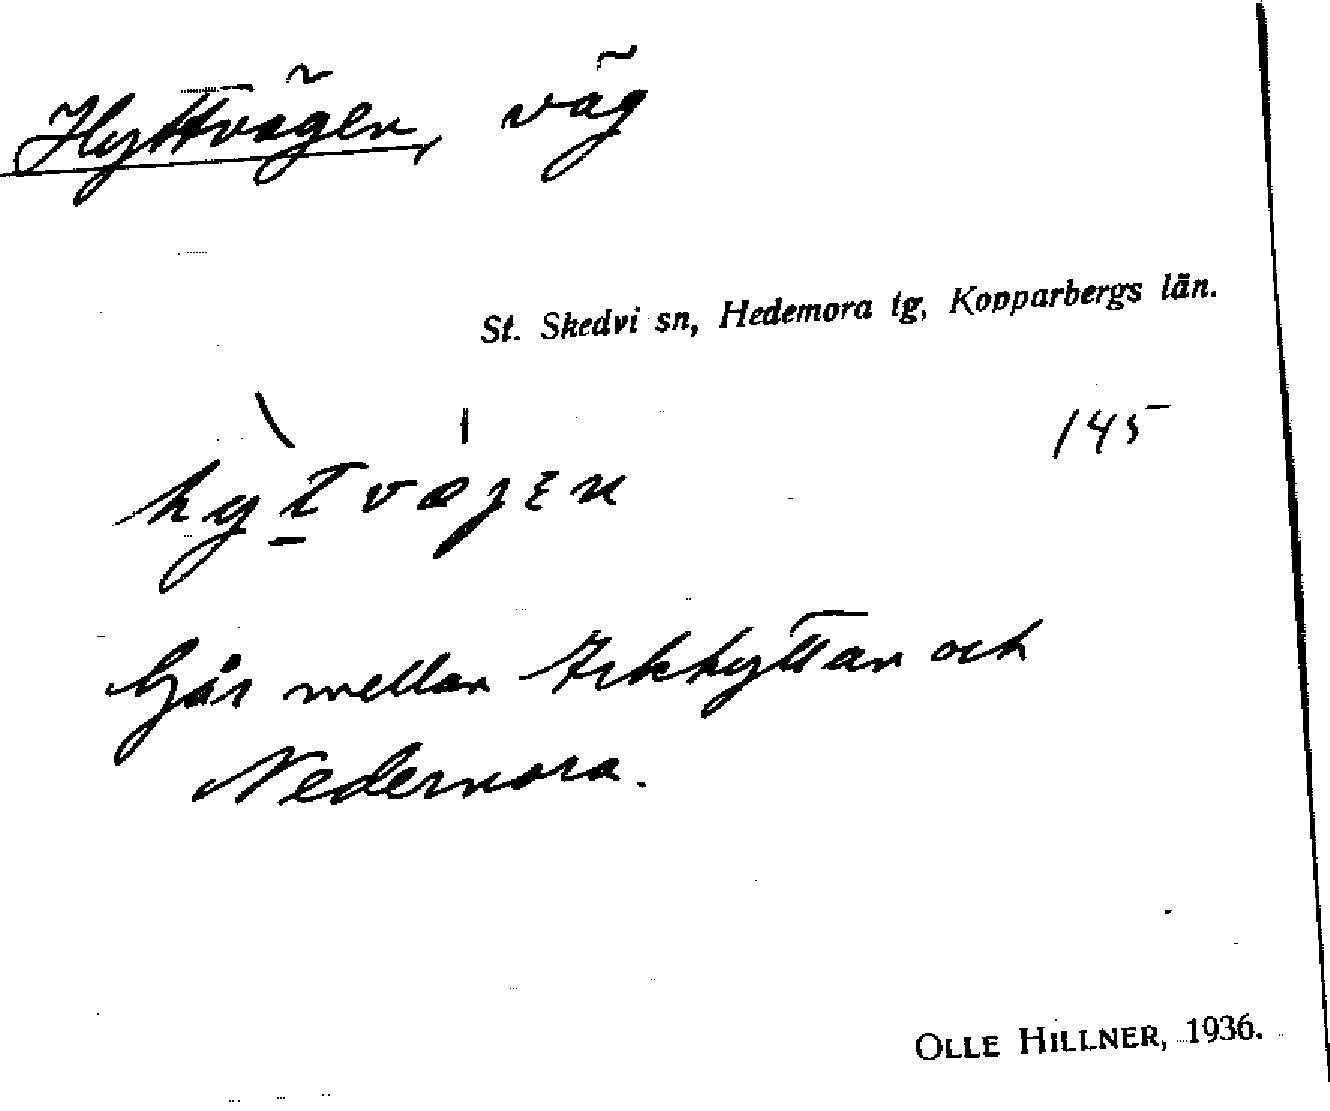 Hyttvägen, väg
St. Skedvi sn, Hedemora tg, Kopparbergs län.
145
hy̖t̲væ̍jɛn
Går mellan Arkhyttan och
Nedernora.
OLLE HILLNER, 1936.